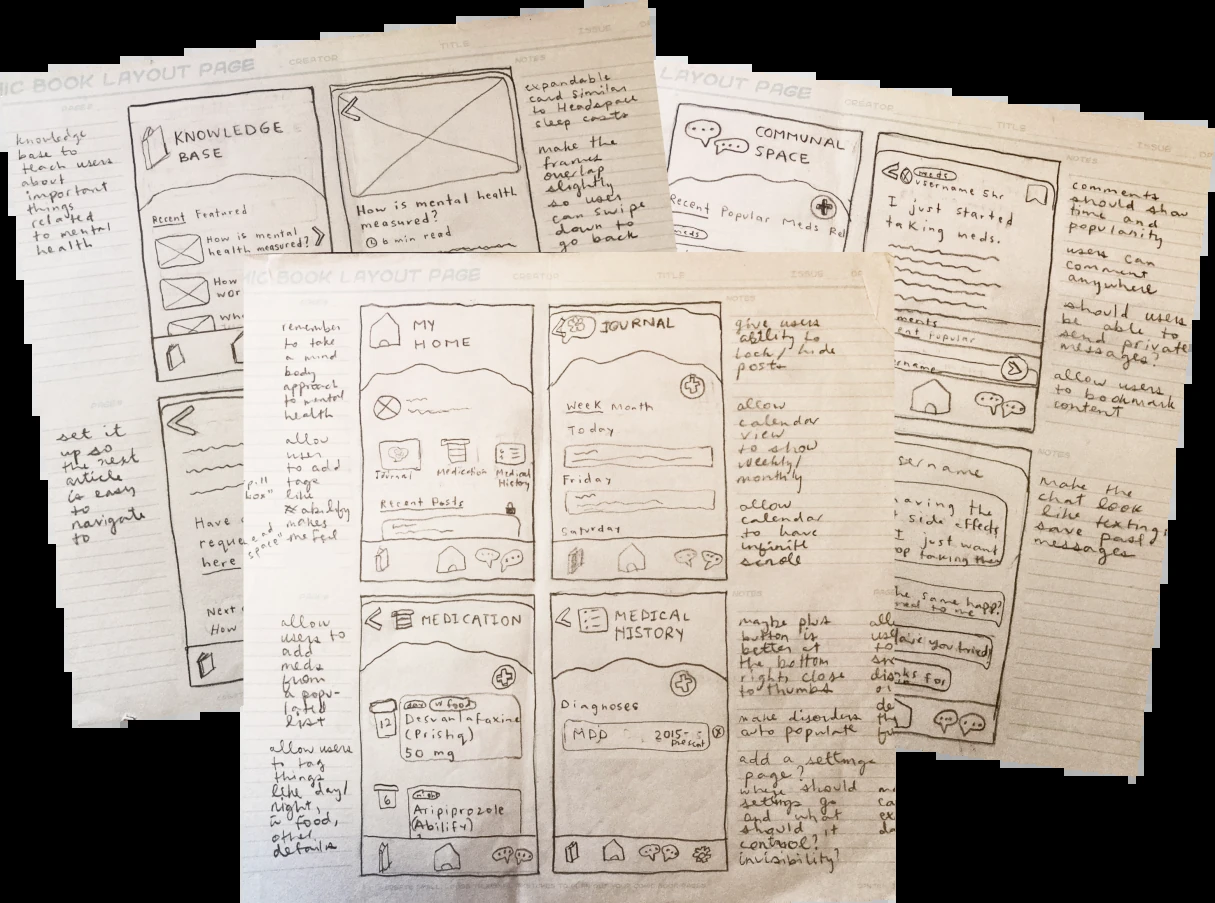 MIC BOOK LAYOUT PAGE
CREATOR
TITLE
ISSUE
NOTES
PAGE#
knowledge
base to
teach users
about
important
things
related
to mental
health
KNOWLEDGE
BASE
Recent Featured
How is mental
health measured?
How
wor
Wh
How is mental health
measured?
6 min read
expandable
card similar
to Headspace
sleep casts
make the
frames
overlap
slightly
so user
can swipe
down to
go back
PAGE#
set it
up so
the next
article
is easy
to
navigate
to
Have
reque
here
Next
How
LAYOUT PAGE
CREATOR
TITLE
ISSUE
NOTES
COMMUNAL
SPACE
Recent Popular Meds Rel
meds
meds
username 5hr
I just started
taking meds.
ments
ent Popular
ername
comments
should show
time and
popularity
users can
comment
anywhere
should users
be able to
send private
messages?
allow users
to bookmark
content
NOTES
sername
having the
side effects
I just want
op taking them
he same happ?
ned to me
Have you tried
nks for
make the
chat look
like texting,
save past
messages
MIC BOOK LAYOUT PAGE
CREATOR
TITLE
ISSUE
PAGE#
NOTES
remember
to take
a mind
body
approach
to mental
health
allow
user
to add
tags
like
"pill
box"
abilify
makes
me feel
space"
MY
HOME
Journal
Medication
Medical
History
Recent Posts
JOURNAL
Week Month
Today
Friday
Saturday
give users
ability to
lock/hide
posts
allow
calendar
view
to show
weekly/
monthly
allow
calendar
to have
infinite
scroll
NOTES
allow
users to
add
meds
from
a popu-
lated
list
allow users
to tag
things
like day/
night,
w food,
other
details
MEDICATION
day
w food
12
Desvanlafaxine
(Pristiq)
50 mg
night
6
Aripiprozole
(Abilify)
MEDICAL
HISTORY
Diagnoses
MDD
2015-
present
maybe plus
button is
better at
the bottom
right, close
to thumbs
make disorders
auto populate
add a settings
page?
where should
settings go
and what
should it
control?
invisibility?